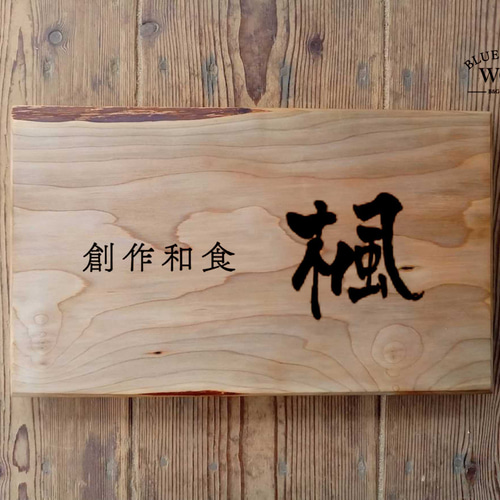 創作和食 楓
BLUE
W